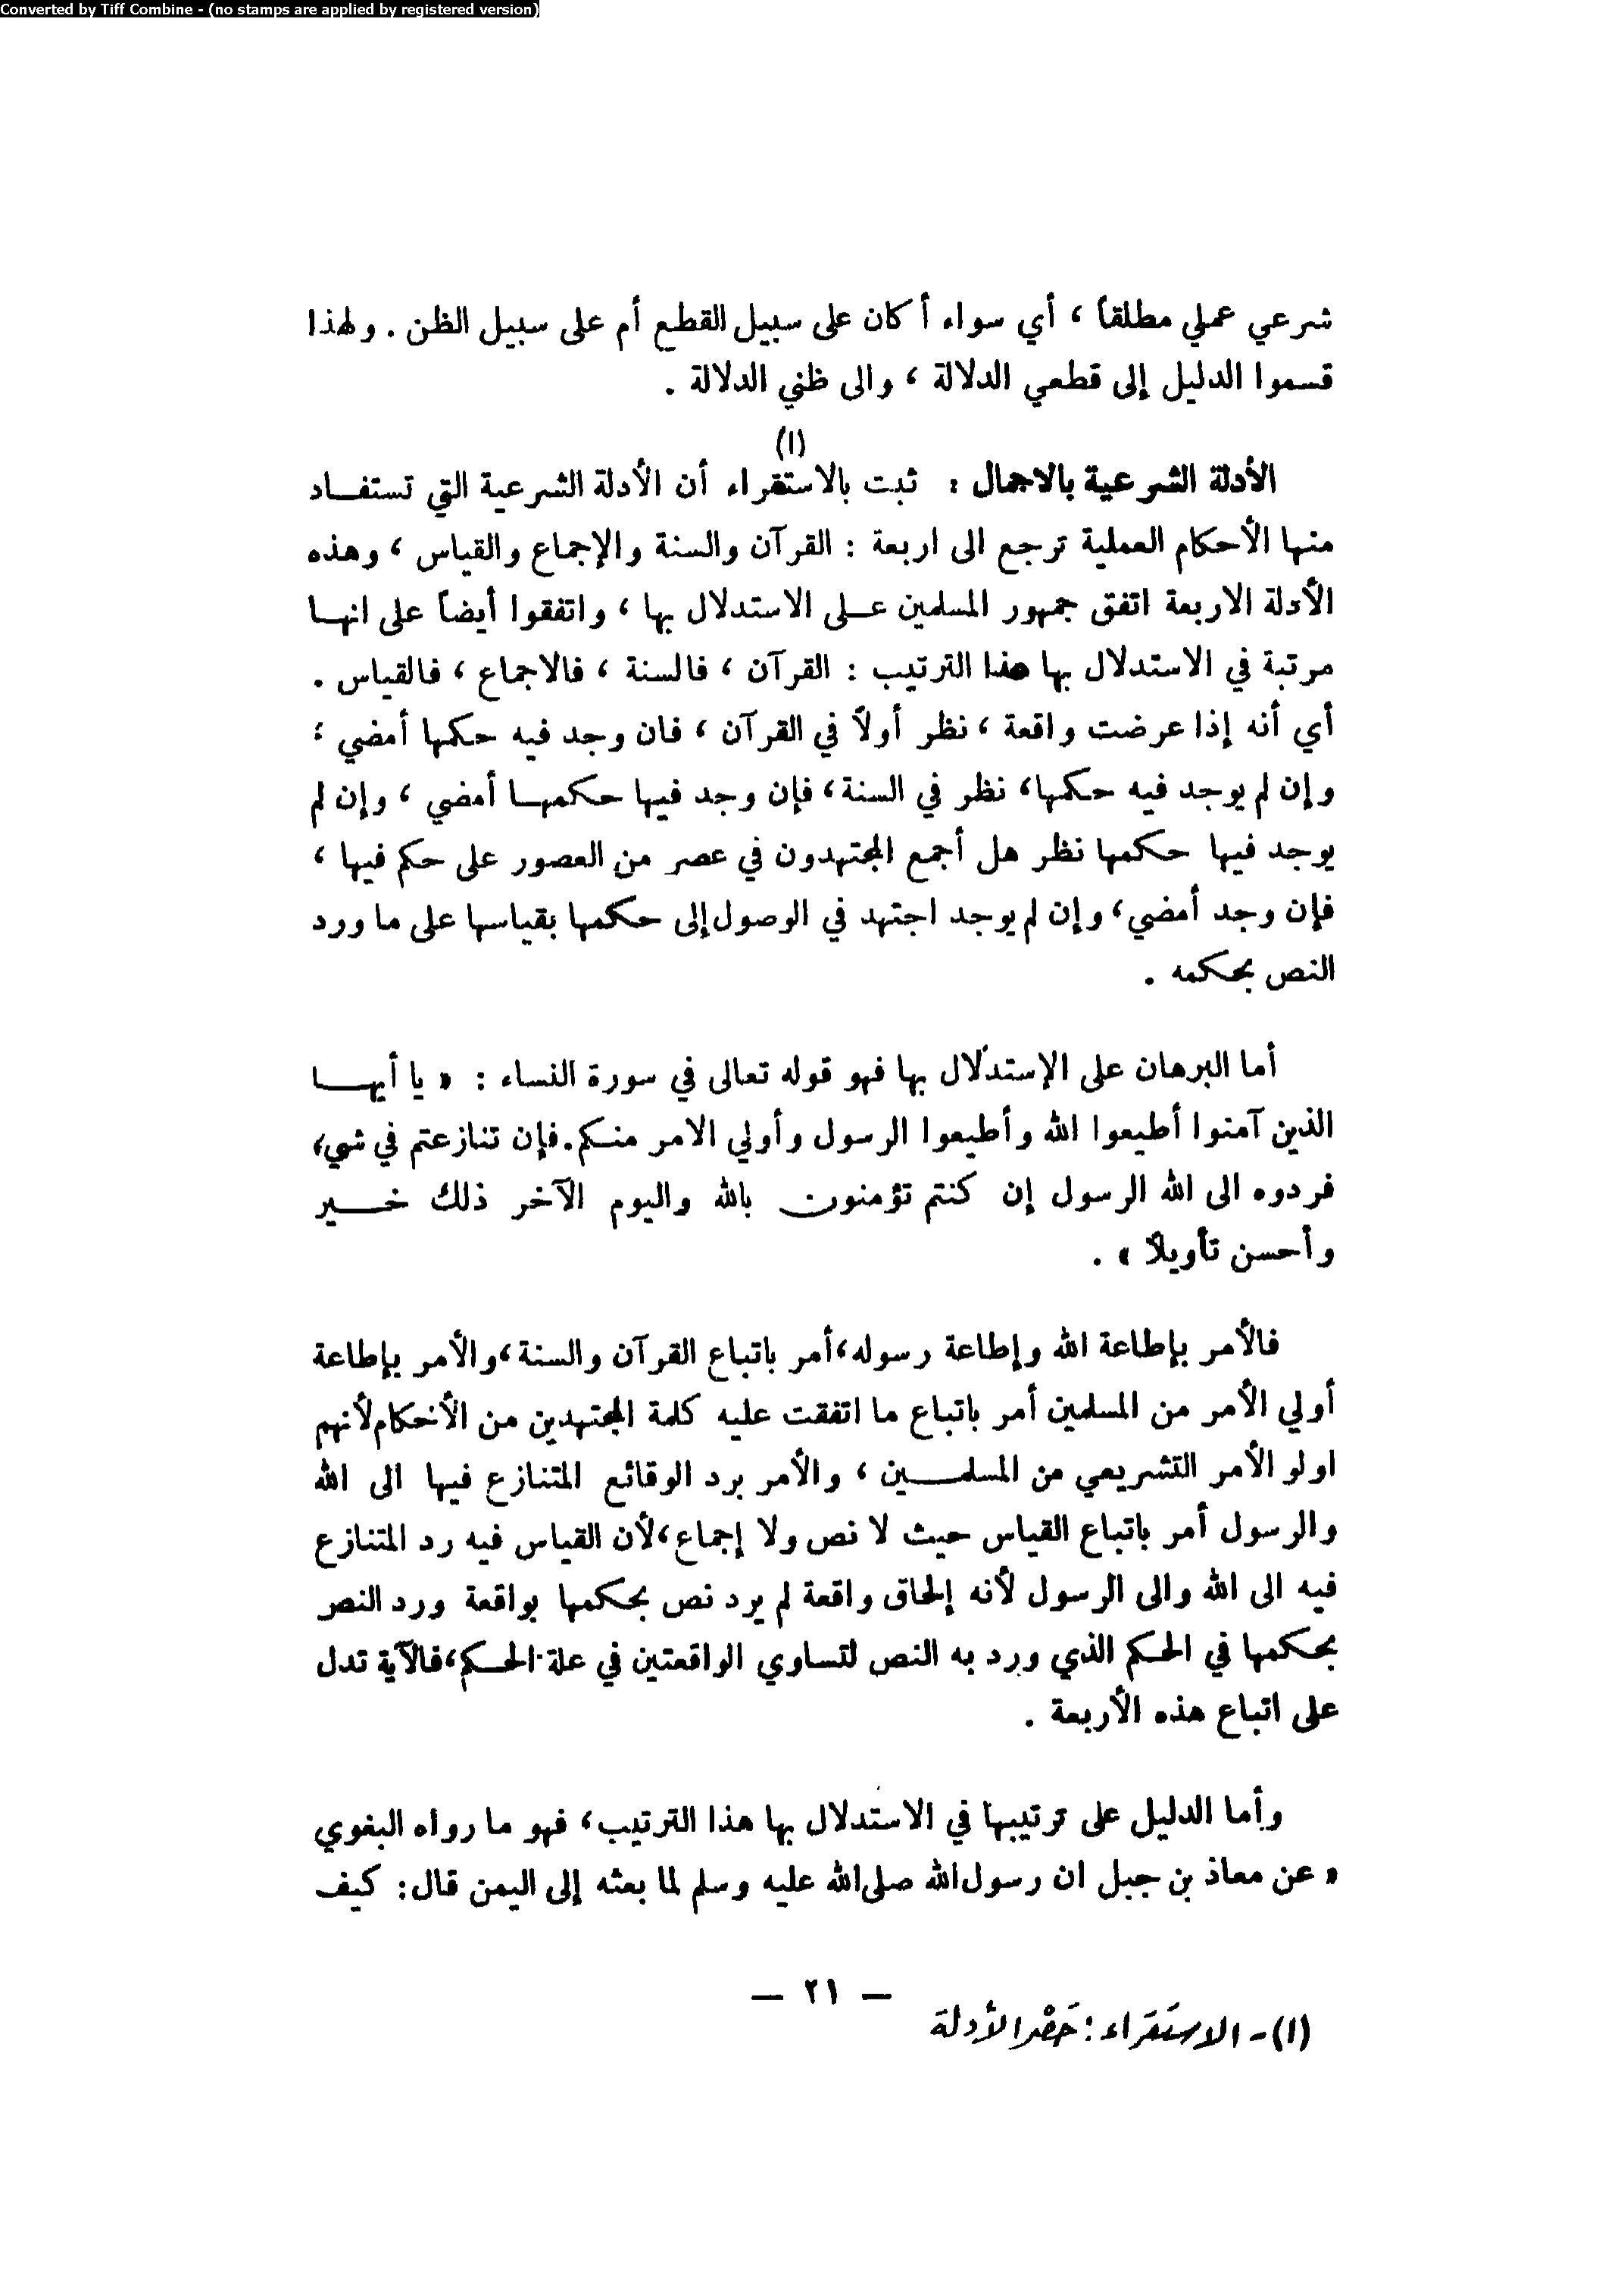 Converted by Tiff Combine - (no stamps are applied by registered version)
شرعي عملي مطلقاً ، أي سواء أكان على سبيل القطع أم على سبيل الظن . ولهذا
قسموا الدليل إلى قطعي الدلالة ، والى ظني الدلالة .
(١)
الأدلة الشرعية بالاجمال : ثبت بالاستقراء أن الأدلة الشرعية التي تستفاد
منها الأحكام العملية ترجع الى اربعة : القرآن والسنة والإجماع والقياس ، وهذه
الأدلة الاربعة اتفق جمهور المسلمين على الاستدلال بها ، واتفقوا أيضاً على انها
مرتبة في الاستدلال بها هذا الترتيب : القرآن ، فالسنة ، فالاجماع ، فالقياس .
أي أنه إذا عرضت واقعة ، نظر أولاً في القرآن ، فان وجد فيه حكمها أمضي ؛
وإن لم يوجد فيه حكمها، نظر في السنة، فإن وجد فيها حكمها أمضي ، وإن لم
يوجد فيها حكمها نظر هل أجمع المجتهدون في عصر من العصور على حكم فيها ،
فإن وجد أمضي، وإن لم يوجد اجتهد في الوصول إلى حكمها بقياسها على ما ورد
النص بحكمه .
أما البرهان على الإستدلال بها فهو قوله تعالى في سورة النساء : « يا أيها
الذين آمنوا أطيعوا الله وأطيعوا الرسول وأولي الامر منكم. فإن تنازعتم في شيء
فردوه الى الله الرسول إن كنتم تؤمنون بالله واليوم الآخر ذلك خير
وأحسن تأويلاً » .
فالأمر بإطاعة الله وإطاعة رسوله، أمر باتباع القرآن والسنة، والأمر بإطاعة
أولي الأمر من المسلمين أمر باتباع ما اتفقت عليه كلمة المجتهدين من الأحكام لأنهم
اولو الأمر التشريعي من المسلمين ، والأمر برد الوقائع المتنازع فيها الى الله
والرسول أمر باتباع القياس حيث لا نص ولا إجماع، لأن القياس فيه رد المتنازع
فيه الى الله والى الرسول لأنه إلحاق واقعة لم يرد نص بحكمها بواقعة ورد النص
بحكمها في الحكم الذي ورد به النص لتساوي الواقعتين في علة الحكم، فالآية تدل
على اتباع هذه الأربعة .
وأما الدليل على ترتيبها في الاستدلال بها هذا الترتيب، فهو ما رواه البغوي
« عن معاذ بن جبل ان رسول الله صلى الله عليه وسلم لما بعثه إلى اليمن قال : كيف
— ٢١ —
(١) - الاستَقراء : حَصْر الأدلة